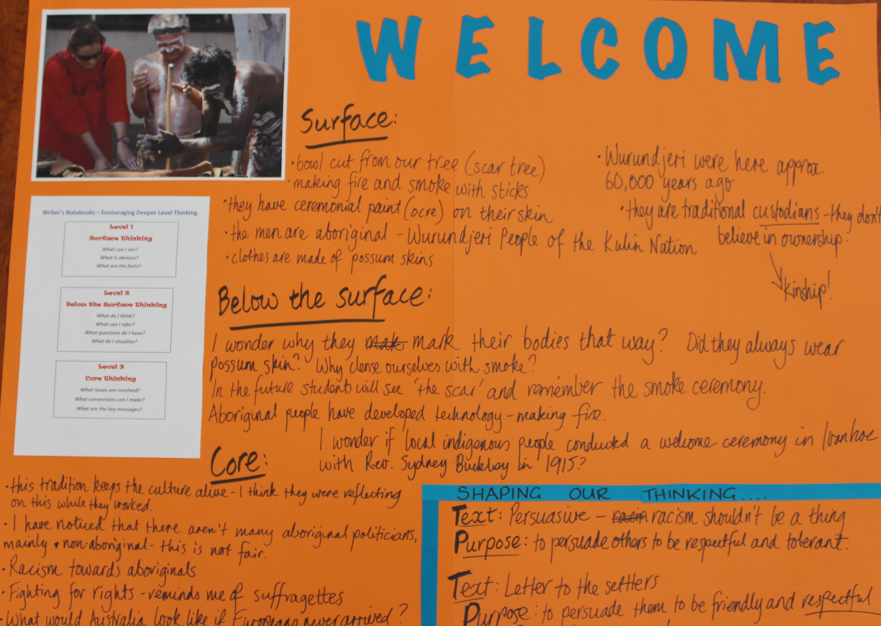 WELCOME
Surface:
• bowl cut from our tree (scar tree)
• making fire and smoke with sticks
• they have ceremonial paint (ocre) on their skin
• the men are aboriginal - Wurundjeri People of the Kulin Nation
• clothes are made of possum skins
• Wurundjeri were here approx.
60,000 years ago
• They are traditional custodians - they don't
believe in ownership.
Kinship!
Writer's Notebooks – Encouraging Deeper Level Thinking
Level 1
Surface Thinking
What can I see?
What is obvious?
What are the facts?
Level 2
Below the Surface Thinking
What do I think?
What can I infer?
What questions do I have?
What do I visualise?
Level 3
Core Thinking
What issues are involved?
What connections can I make?
What are the key messages?
Below the surface:
I wonder why they mak mark their bodies that way? Did they always wear
possum skin? Why clense ourselves with smoke?
In the future students will see 'the scar' and remember the smoke ceremony.
Aboriginal people have developed technology - making fire.
I wonder if local indigenous people conducted a welcome ceremony in Ivanhoe
with Rev. Sydney Buckley in 1915?
Core:
• this tradition keeps the culture alive - I think they were reflecting
on this while they worked.
• I have noticed that there aren't many aboriginal politicians,
mainly non-aboriginal - this is not fair.
• Racism towards aboriginals
• Fighting for rights - reminds me of suffragettes
• What would Australia look like if Europeans never arrived?
SHAPING OUR THINKING....
Text: Persuasive - racism shouldn't be a thing
Purpose: to persuade others to be respectful and tolerant.
Text: Letter to the settlers
Purpose: to persuade them to be friendly and respectful